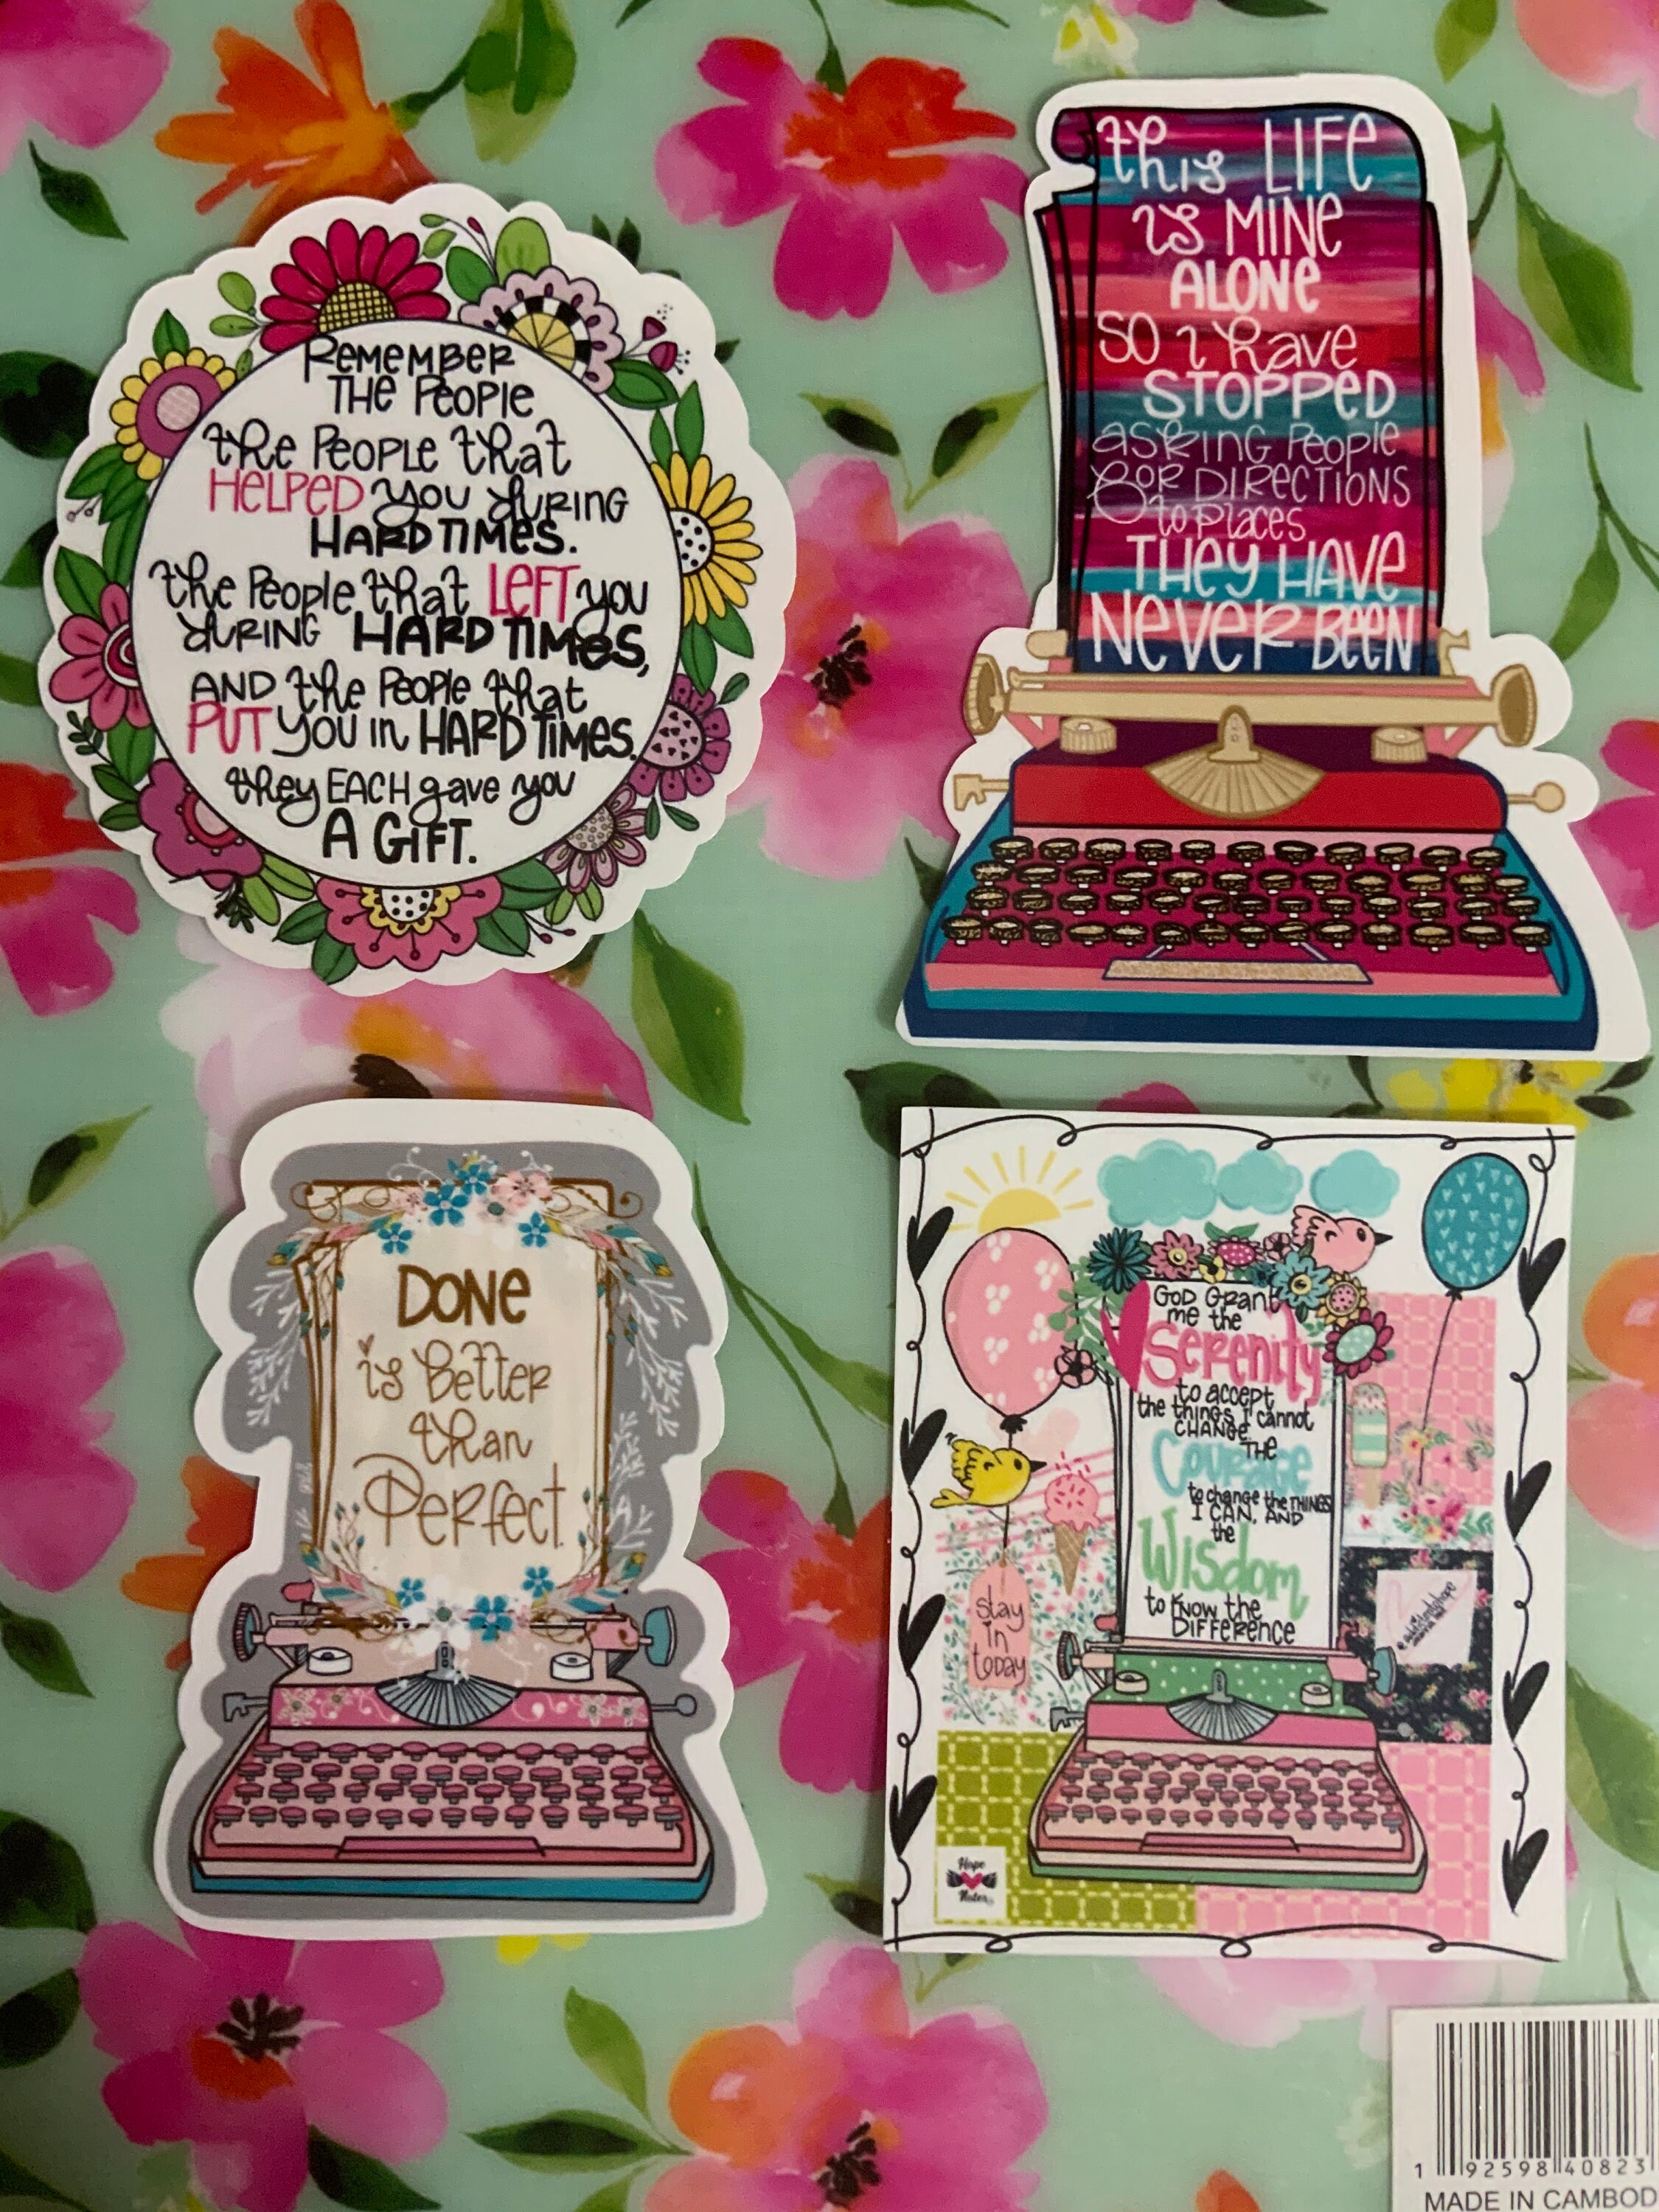 REMEMBER
THE PEOPLE
the PEOPLE that
HELPED you DURING
HARD TIMES.
the People that LEFT you
DURING HARD TIMES,
AND the PEOPLE that
PUT YOU IN HARD TIMES.
they EACH gave you
A GIFT.
this LIFE
is MINE
ALONE
SO i have
STOPPED
asking People
FOR DIRECTIONS
to Places
THEY HAVE
NEVER BEEN
DONE
is Better
than
Perfect.
GOD Grant
me the
Serenity
to accept
the things I cannot
CHANGE.
THE
Courage
to change the THINGS
I CAN, AND
the
Wisdom
to know the
DIFFERENCE
stay
in
today
Hope
Notes
1 92598 40823
MADE IN CAMBOD